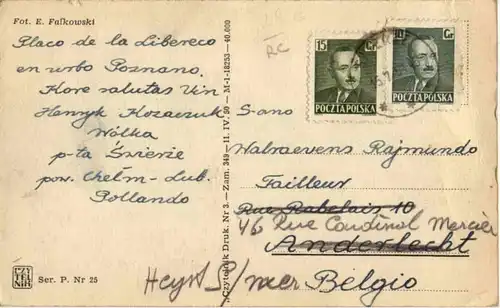 Fot. E. Falkowski
Placo de la Libereco
en urbo Poznano.
Kore salutas Vin
Henryk Kozaczuk
Wólka
p-ta Świerże
pow. Chełm-Lub.
Pollando
Ser. P. Nr 25
"Czytelnik" Druk. Nr 3. — Zam. 349 — 11. IV. 50 — M-1-18253 — 40.000
RC
15 Gr
POCZTA POLSKA
Gr
POCZTA POLSKA
S-ano
Walraevens Rajmundo
Tailleur
Rue Rabelais 10
46 Rue Cardinal Mercier
Anderlecht
Heyst s/mer Belgio